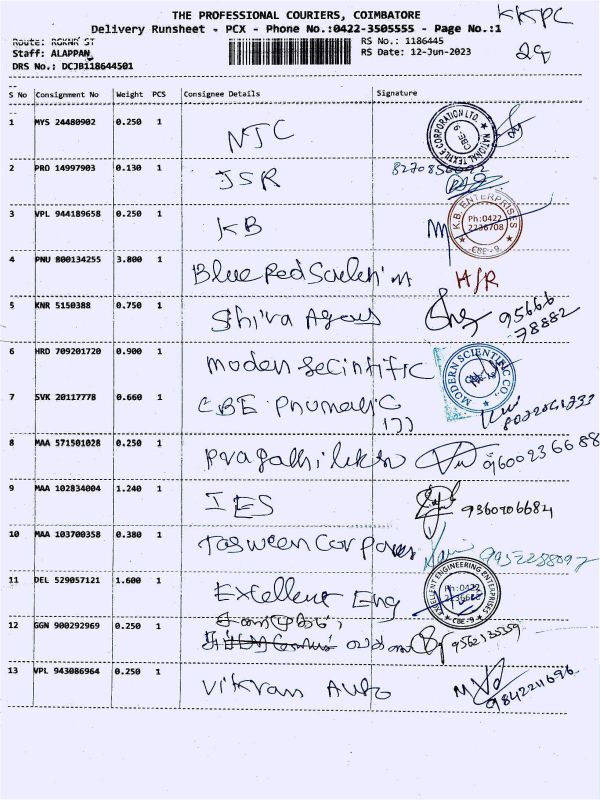 THE PROFESSIONAL COURIERS, COIMBATORE
KKPC
Delivery Runsheet - PCX - Phone No.:0422-3505555 - Page No.:1
Route: RGKNR ST
RS No.: 1186445
29
Staff: ALAPPAN
RS Date: 12-Jun-2023
DRS No.: DCJB118644501
S No Consignment No Weight PCS Consignee Details Signature
1 MYS 24480902 0.250 1 NTC NATIONAL TEXTILE CORPORATION LTD. CBE-9
2 PRO 14997903 0.130 1 JSR
3 VPL 944189658 0.250 1 KB K.B. ENTERPRISES Ph:0422 2236708 CBE-9
4 PNU 800134255 3.800 1 Blue Red H/R
5 KNR 5150388 0.750 1 Shiva 95666 78882
6 HRD 709201720 0.900 1 Moden Secintific MODERN SCIENTIFIC CO.,
7 SVK 20117778 0.660 1 CBE Pnumatic
8 MAA 571501028 0.250 1 9600236688
9 MAA 102834004 1.240 1 IES 9360706684
10 MAA 103700358 0.380 1 Tasween
11 DEL 529057121 1.600 1 Excellent Eng EXCELLENT ENGINEERING ENTERPRISES Ph:0422 CBE-9
12 GGN 900292969 0.250 1 9562135359
13 VPL 943086964 0.250 1 Vikran Auto 9842211696